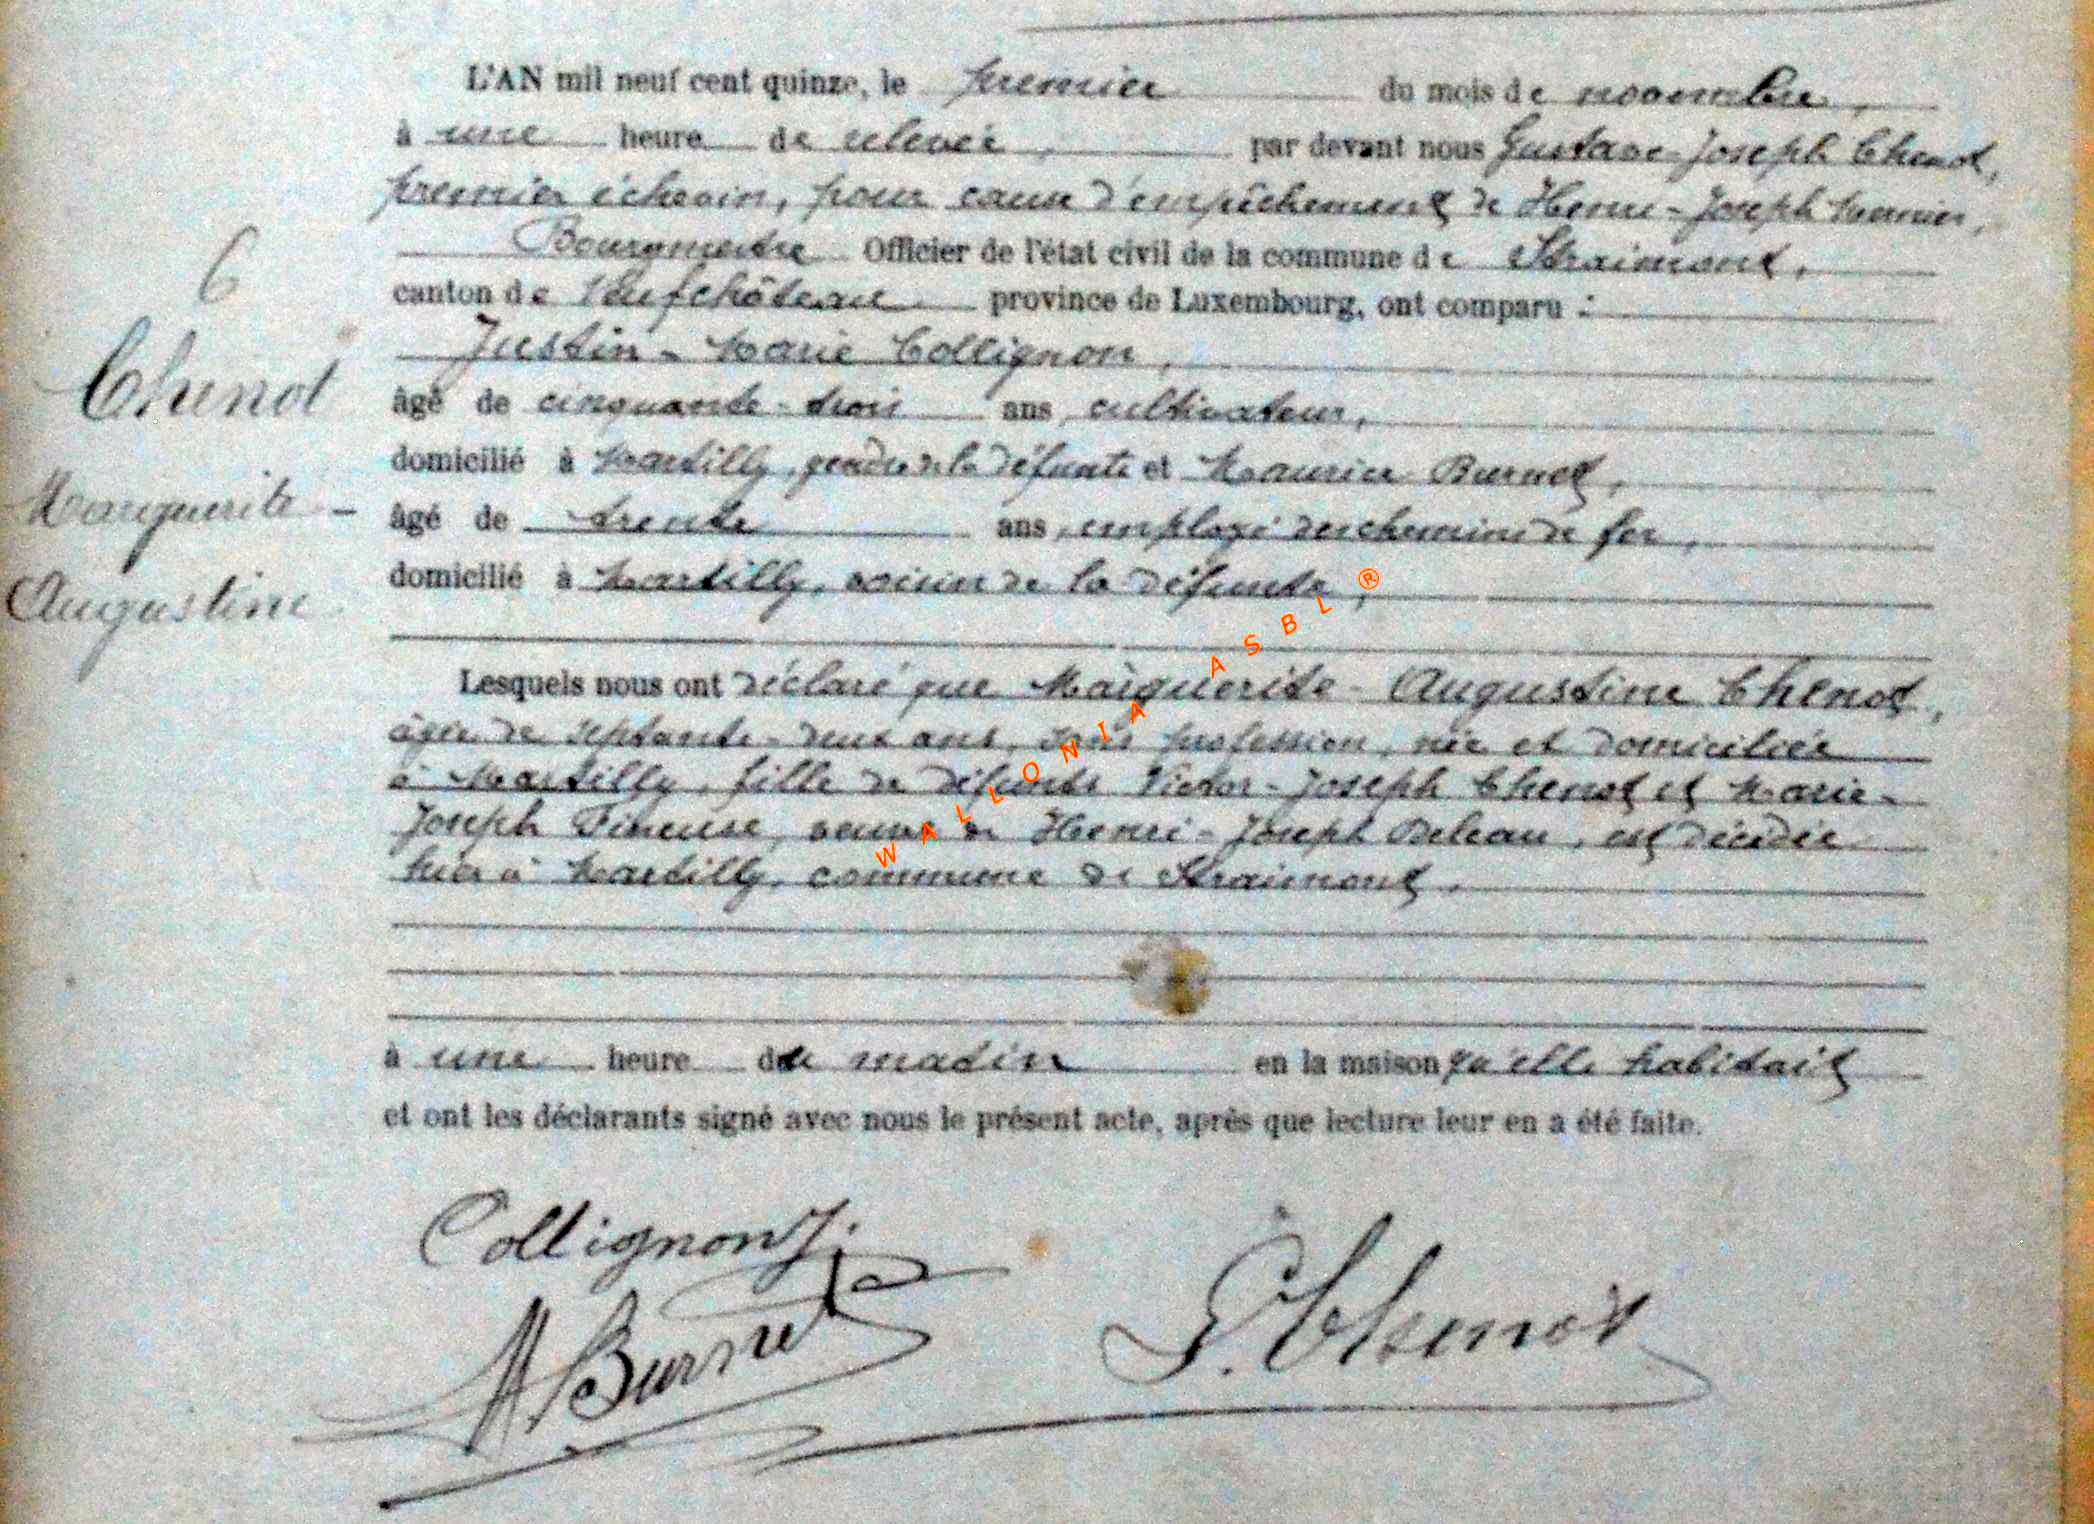 L'AN mil neuf cent quinze, le premier du mois de novembre,
à une heure de relevée, par devant nous Gustave-Joseph Chenot,
premier échevin, pour cause d'empêchement de Henri-Joseph
Bourgmestre Officier de l'état civil de la commune de Straimont,
canton de Neufchâteau province de Luxembourg, ont comparu :
Justin-Marie Collignon,
âgé de cinquante-trois ans, cultivateur,
domicilié à Martilly, gendre de la défunte et Maurice Burnet,
âgé de trente ans, employé des chemins de fer,
domicilié à Martilly, voisin de la défunte,
6
Chenot
Marguerite-
Augustine
Lesquels nous ont déclaré que Marguerite-Augustine Chenot,
âgée de septante-deux ans, sans profession, née et domiciliée
à Martilly, fille de défunts Victor-Joseph Chenot et Marie-
Joseph Pineuse, veuve de Henri-Joseph Deleau, est décédée
hier à Martilly, commune de Straimont,
à une heure du matin en la maison qu'elle habitait
et ont les déclarants signé avec nous le présent acte, après que lecture leur en a été faite.
Collignon J.
M Burnet
G. Chenot
WALLONIA ASBL ®